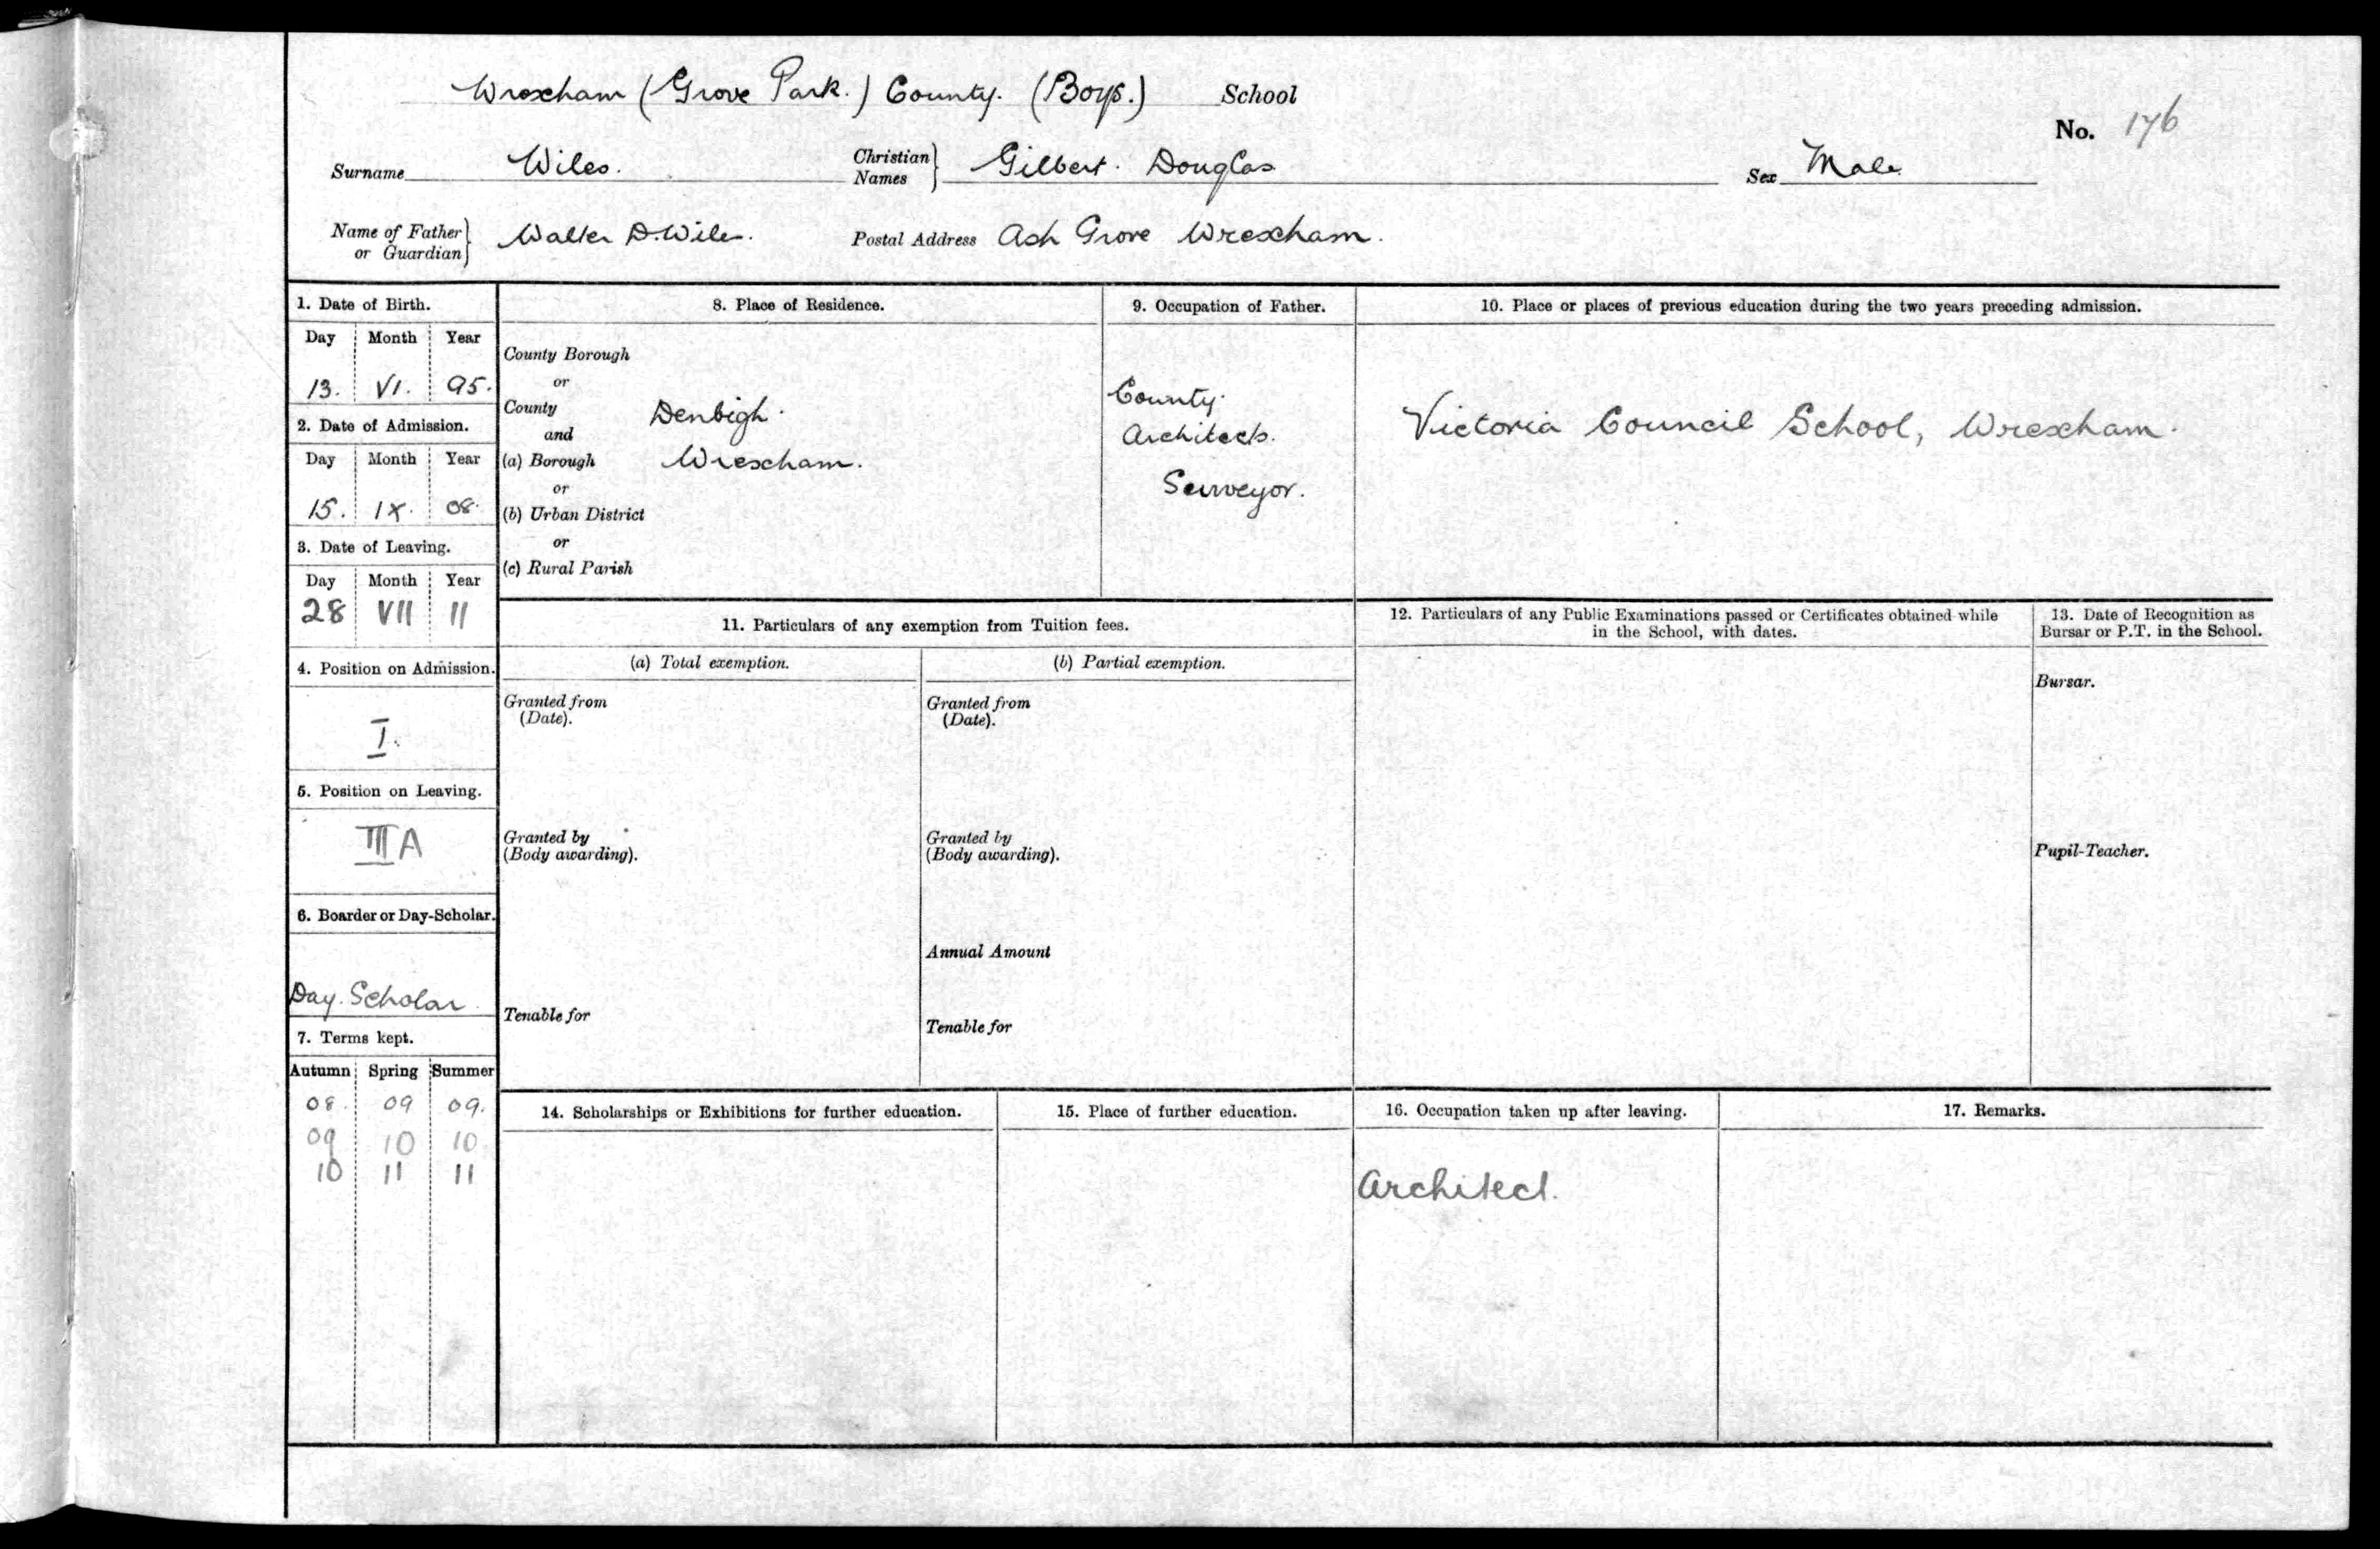 Wrexham (Grove Park.) County. (Boys.) School
No. 176
Surname Wiles. Christian Names } Gilbert. Douglas Sex Male
Name of Father or Guardian } Walter D. Wiles. Postal Address Ash Grove Wrexham.
1. Date of Birth.
Day Month Year
13. VI. 95.
2. Date of Admission.
Day Month Year
15. IX. 08.
3. Date of Leaving.
Day Month Year
28 VII 11
4. Position on Admission.
I.
5. Position on Leaving.
III A
6. Boarder or Day-Scholar.
Day. Scholar.
7. Terms kept.
Autumn Spring Summer
08. 09 09.
09 10 10
10 11 11
8. Place of Residence.
County Borough
or
County Denbigh.
and
(a) Borough Wrexham.
or
(b) Urban District
or
(c) Rural Parish
9. Occupation of Father.
County.
Architects.
Surveyor.
10. Place or places of previous education during the two years preceding admission.
Victoria Council School, Wrexham.
11. Particulars of any exemption from Tuition fees.
(a) Total exemption.
Granted from
(Date).
Granted by
(Body awarding).
Tenable for
(b) Partial exemption.
Granted from
(Date).
Granted by
(Body awarding).
Annual Amount
Tenable for
12. Particulars of any Public Examinations passed or Certificates obtained while
in the School, with dates.
13. Date of Recognition as
Bursar or P.T. in the School.
Bursar.
Pupil-Teacher.
14. Scholarships or Exhibitions for further education.
15. Place of further education.
16. Occupation taken up after leaving.
Architect.
17. Remarks.